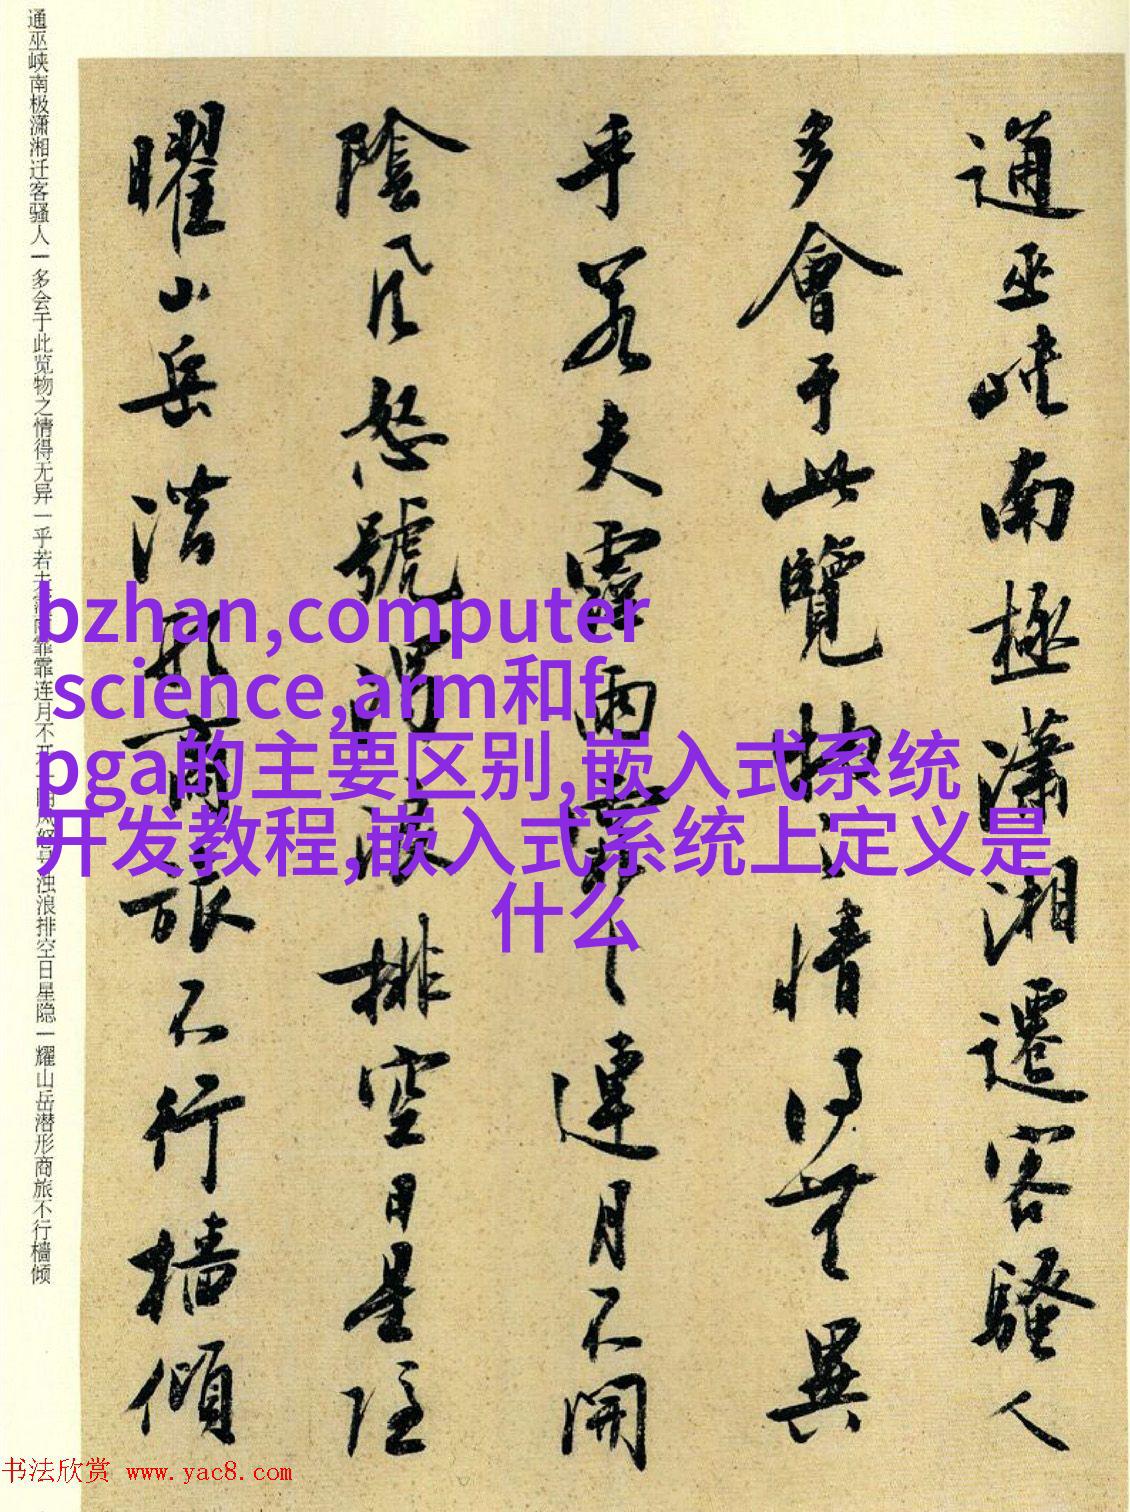 通巫峽南極瀟湘遷客騷人
多會于此覽物之情得無異
乎若夫霪雨霏霏連月不開
陰風怒號濁浪排空日星隱
曜山岳潜形商旅不行檣傾
通巫峡南极潇湘迁客骚人一多会于此览物之情得无异一乎若夫霪雨霏霏连月不开一阴风怒号浊浪排空日星隐一耀山岳潜形商旅不行樯倾
bzhan,computer
science,arm和f
pga的主要区别,嵌入式系统
开发教程,嵌入式系统上定义是
什么
书法欣赏 www.yac8.com